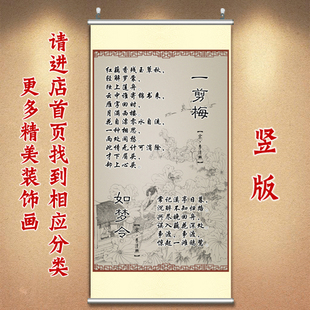 请进店首页找到相应分类
更多精美装饰画
竖版
一剪梅
红藕香残玉簟秋，
轻解罗裳
独上兰舟
云中谁寄锦书来，
雁字回时
月满西楼
花自飘零水自流，
一种相思
两处闲愁
此情无计可消除，
才下眉头
却上心头
如梦令
常记溪亭日暮
沉醉不知归路
兴尽晚回舟
误入藕花深处
争渡，争渡
惊起一滩鸥鹭